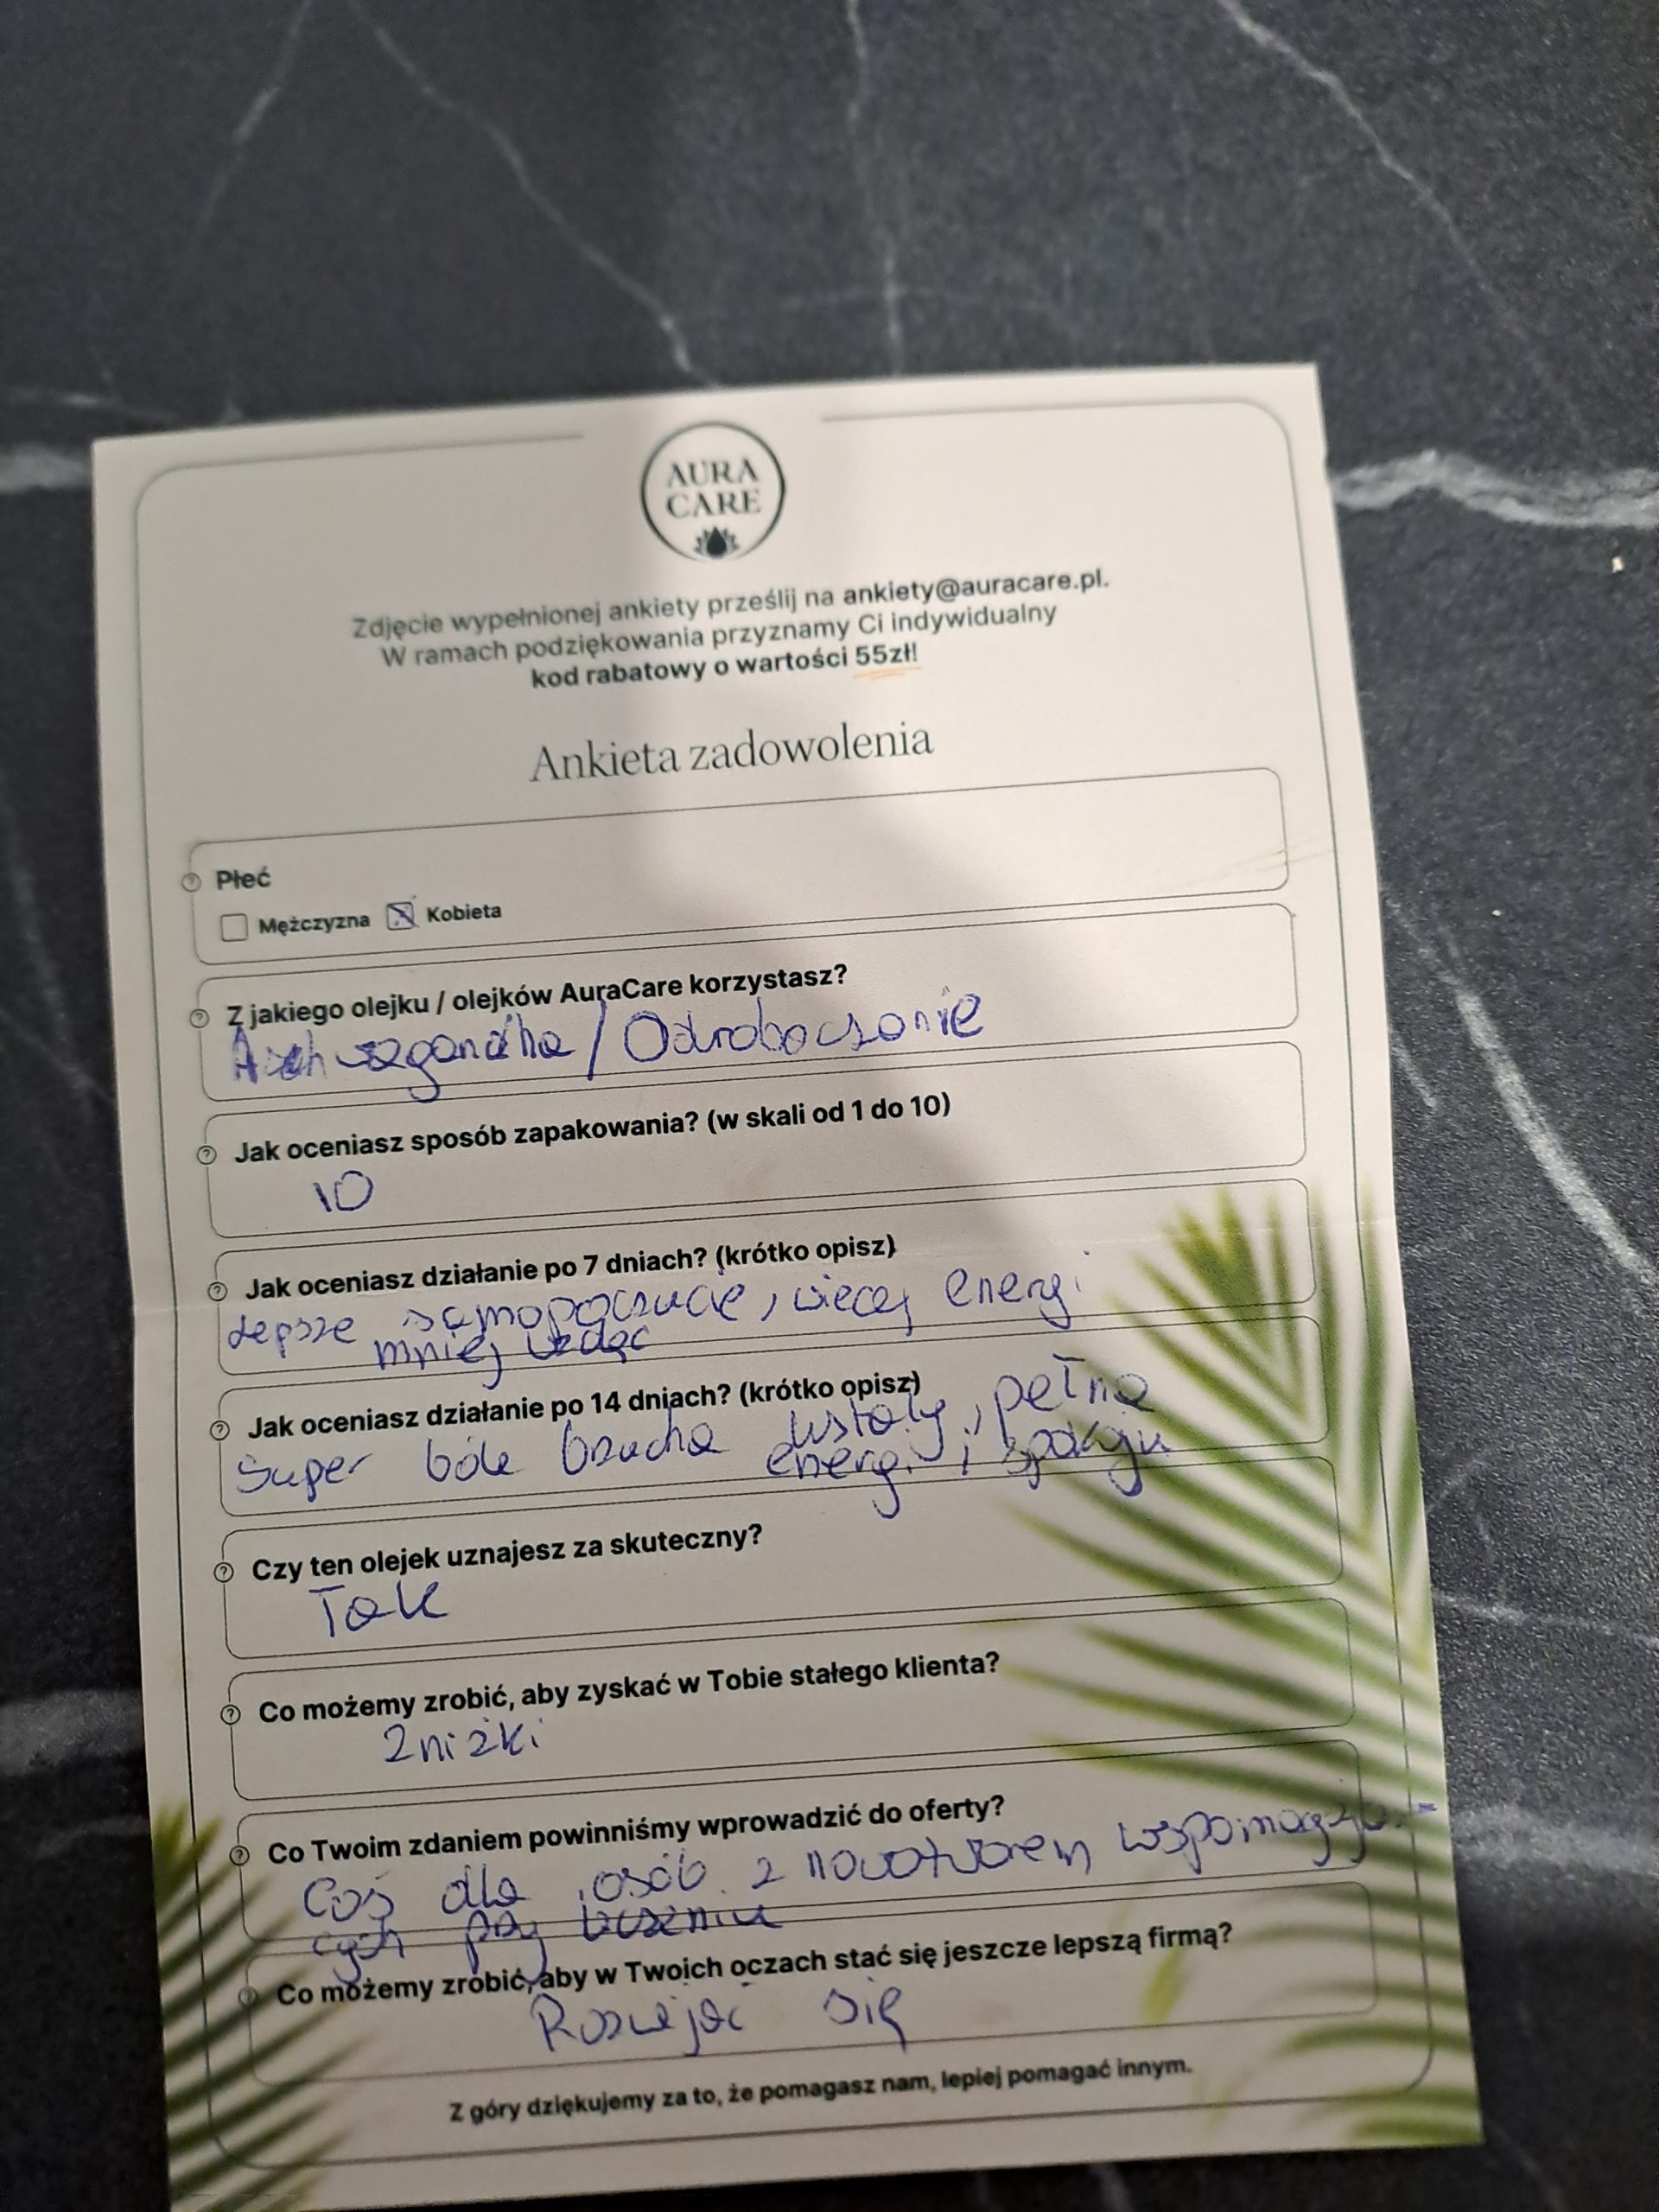 AURA
CARE
Zdjęcie wypełnionej ankiety prześlij na ankiety@auracare.pl.
W ramach podziękowania przyznamy Ci indywidualny
kod rabatowy o wartości 55zł!
Ankieta zadowolenia
Płeć
Mężczyzna Kobieta
Z jakiego olejku / olejków AuraCare korzystasz?
Ashwagandha / Odrobaczanie
Jak oceniasz sposób zapakowania? (w skali od 1 do 10)
10
Jak oceniasz działanie po 7 dniach? (krótko opisz)
Lepsze samopoczucie, więcej energi
mniej wzdęć
Jak oceniasz działanie po 14 dniach? (krótko opisz)
Super bóle brzucha ustały, pełna
energi i spokoju
Czy ten olejek uznajesz za skuteczny?
Tak
Co możemy zrobić, aby zyskać w Tobie stałego klienta?
Zniżki
Co Twoim zdaniem powinniśmy wprowadzić do oferty?
Coś dla osób z nowotworem wspomagają-
cych przy leczeniu
Co możemy zrobić, aby w Twoich oczach stać się jeszcze lepszą firmą?
Rozwijać się
Z góry dziękujemy za to, że pomagasz nam, lepiej pomagać innym.